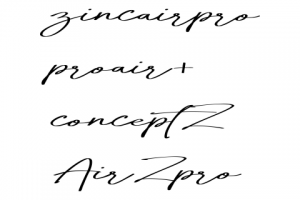 zincairpro
proair+
conceptZ
AirZpro